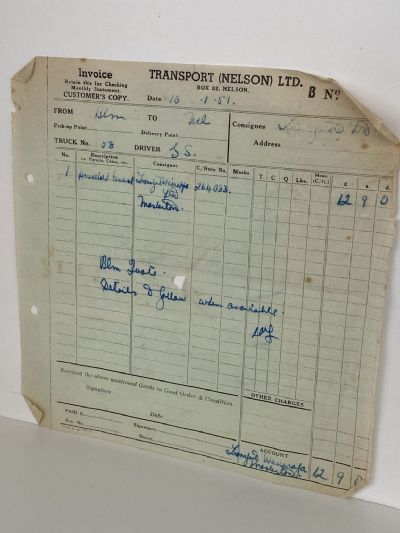 Invoice
Retain this for Checking
Monthly Statement.
CUSTOMER'S COPY.
TRANSPORT (NELSON) LTD.
BOX 62, NELSON.
B No
Date 16 -1-51.
FROM Blm TO Nel
Consignee
Pick-up Point
Delivery Point
Address
TRUCK No. 58 DRIVER S S.
No. Description i.e. Parcels, Cases, etc. Consignor C/Note No. Marks T C Q Lbs. Meas. (C/ft.) £ s. d.
1 Household Removal Wairarapa 264033 12 9 0
Masterton.
Blm Quote.
Details to follow when available.
Received the above mentioned Goods in Good Order & Condition.
Signature Date
OTHER CHARGES
PAID £ Signature
Rec. No. Date
ACCOUNT
Wairarapa
Masterton. 12 9 0